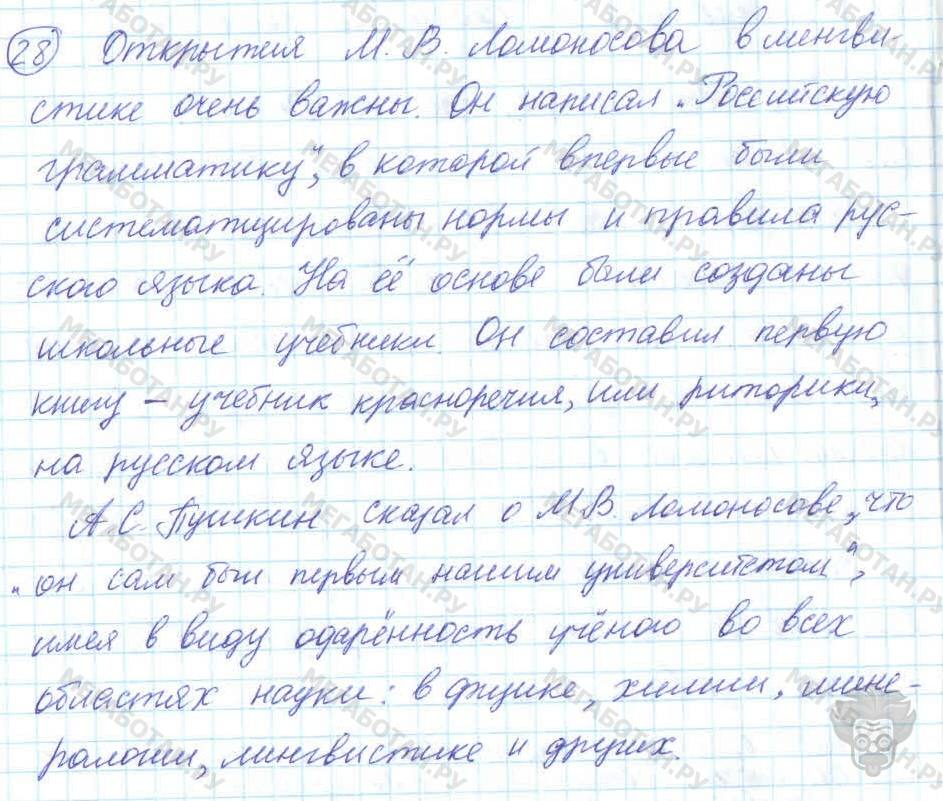 28 Открытия М. В. Ломоносова в лингви-
стике очень важны. Он написал „Российскую
грамматику", в которой впервые были
систематизированы нормы и правила рус-
ского языка. На её основе были созданы
школьные учебники. Он составил первую
книгу – учебник красноречия, или риторики,
на русском языке.
А.С. Пушкин сказал о М.В. Ломоносове, что
„он сам был первым нашим университетом",
имея в виду одарённость учёного во всех
областях науки: в физике, химии, мине-
ралогии, лингвистике и других.
МЕГАБОТАН.РУ